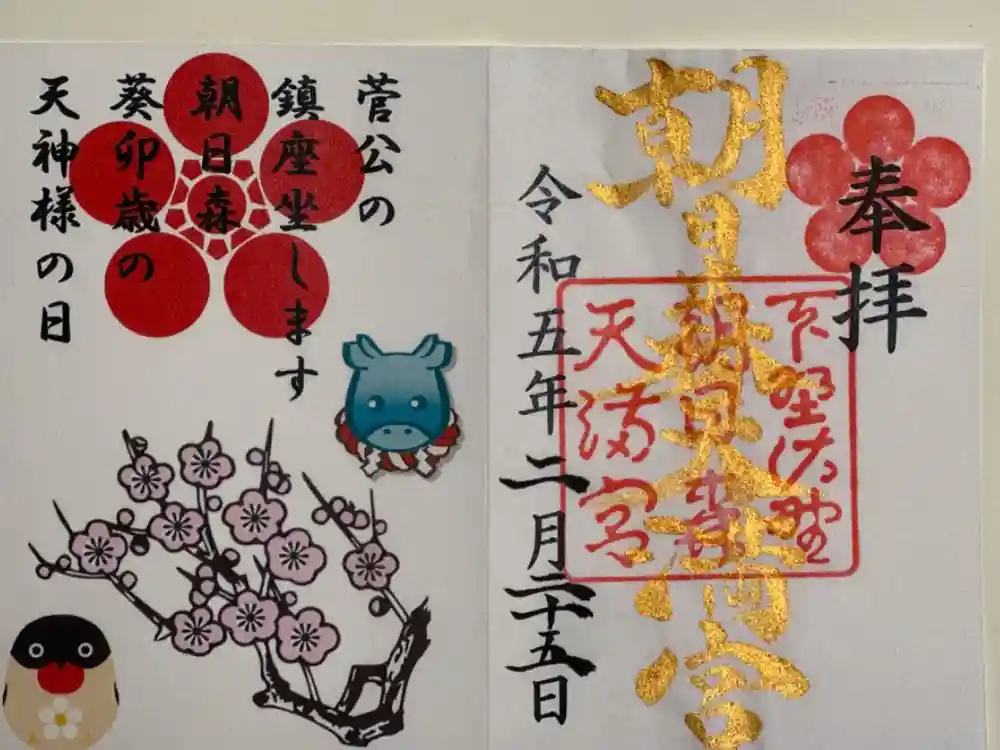 奉拝
朝日森天満宮
下野佐野
朝日森
天満宮
令和五年二月二十五日
菅公の
鎮座坐します
朝日森
葵卯歳の
天神様の日